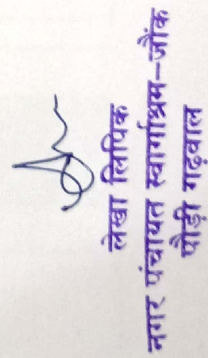 लेखा लिपिक
नगर पंचायत स्वर्गाश्रम–जौंक
पौड़ी गढ़वाल